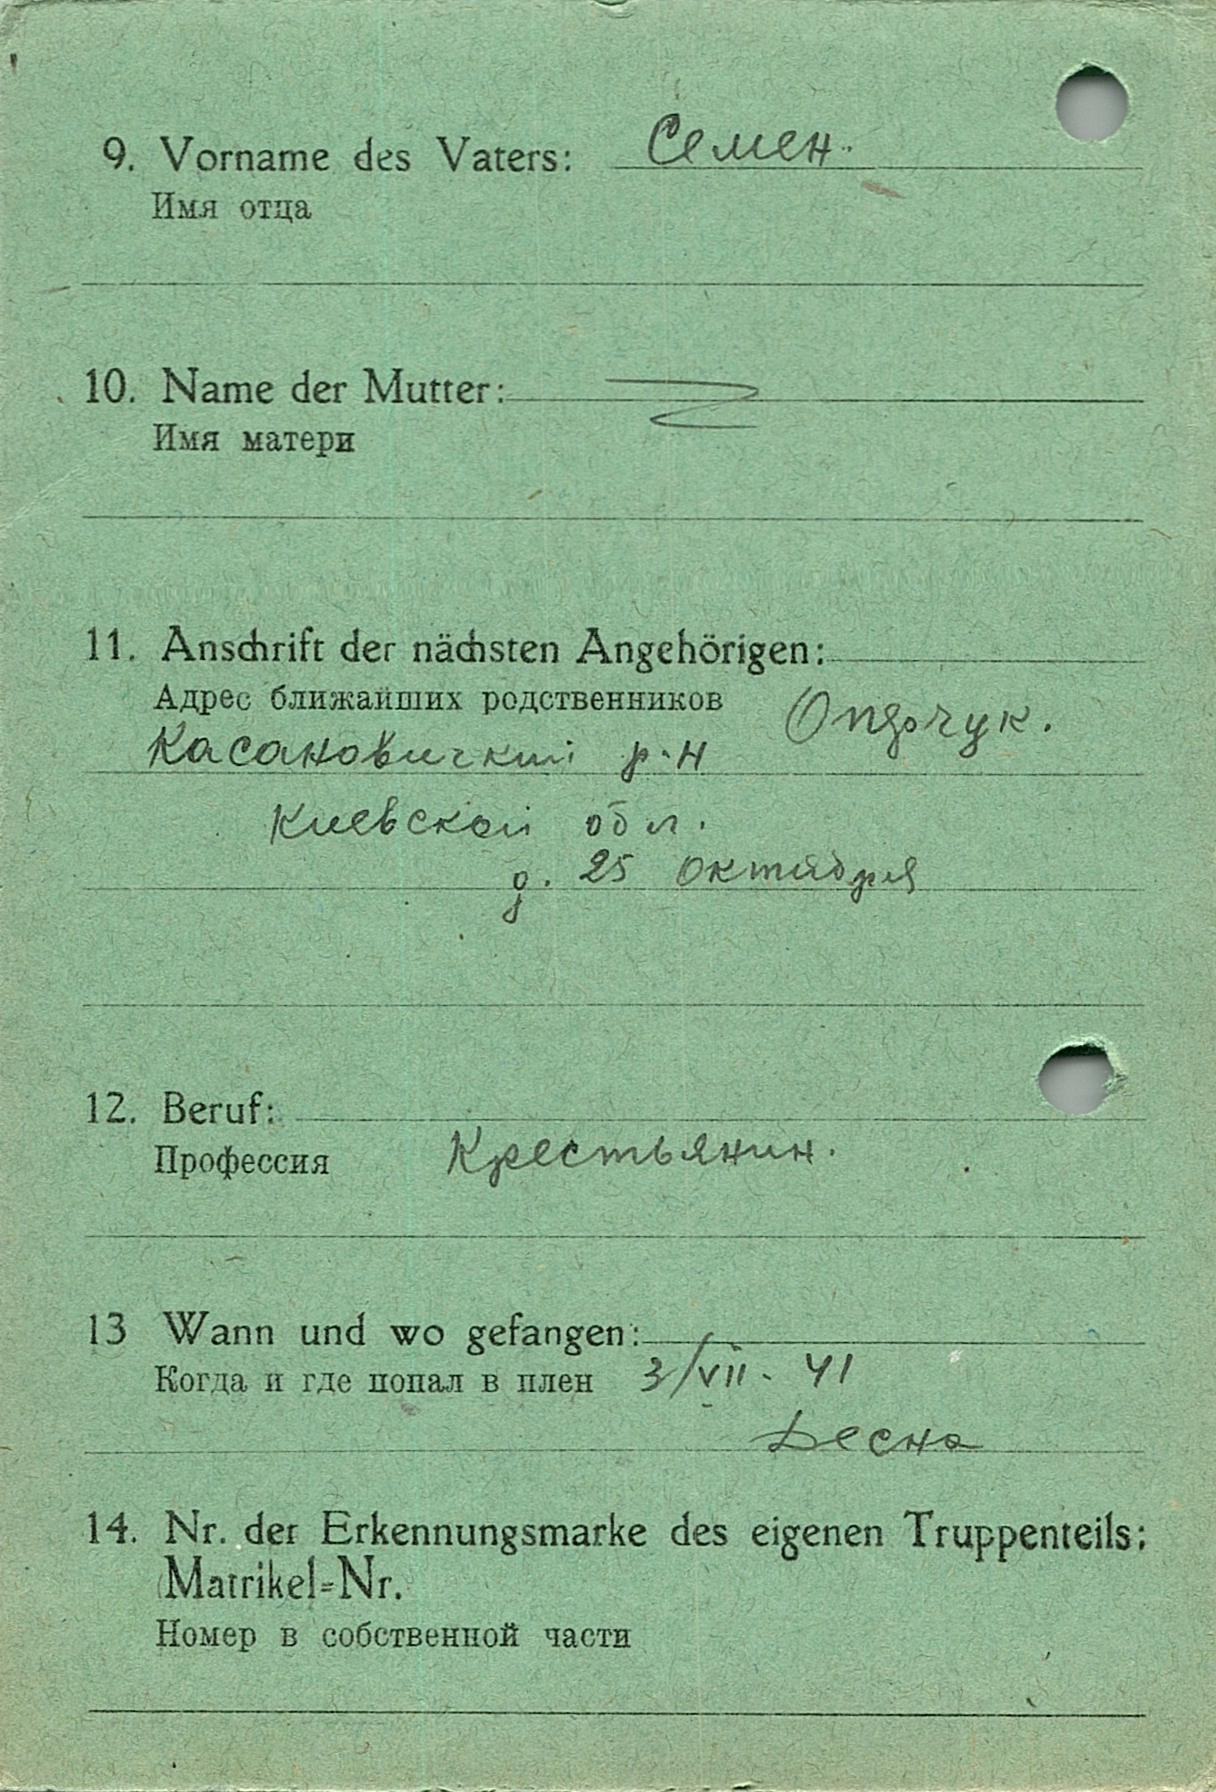 9. Vorname des Vaters: Семен.
Имя отца
10. Name der Mutter:
Имя матери
11. Anschrift der nächsten Angehörigen:
Адрес ближайших родственников
Касановичский р-н
Киевской обл.
д. 25 Октября
12. Beruf:
Профессия Крестьянин.
13 Wann und wo gefangen:
Когда и где попал в плен 3/VII - 41
Десна
14. Nr. der Erkennungsmarke des eigenen Truppenteils:
Matrikel=Nr.
Номер в собственной части